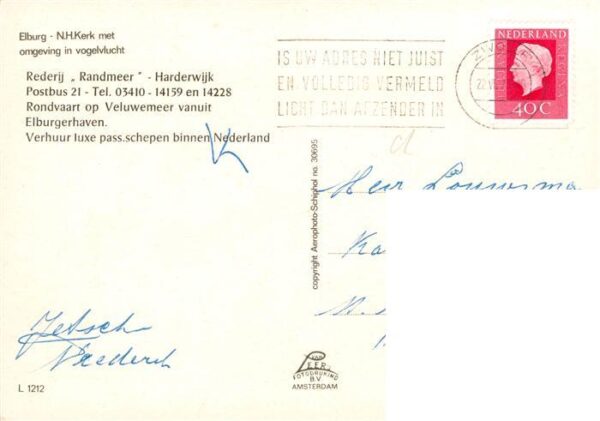 Elburg - N.H.Kerk met
omgeving in vogelvlucht
Rederij „Randmeer" - Harderwijk
Postbus 21 - Tel. 03410 - 14159 en 14228
Rondvaart op Veluwemeer vanuit
Elburgerhaven.
Verhuur luxe pass.schepen binnen Nederland
IS UW ADRES NIET JUIST
EN VOLLEDIG VERMELD
LICHT DAN AFZENDER IN
NEDERLAND
40C
copyright Aerophoto-Schiphol no. 30695
Heer
L 1212
VAN
LEER
FOTODRUKIND
B.V.
AMSTERDAM